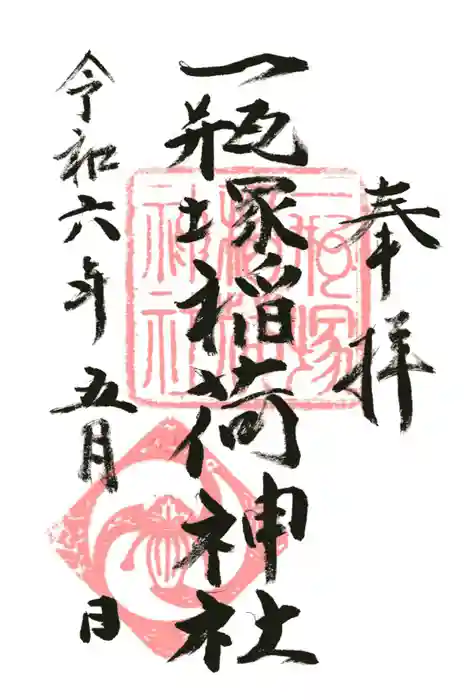 奉拝
一瓶塚稲荷神社
令和六年五月 日
一瓶塚
稲荷
神社